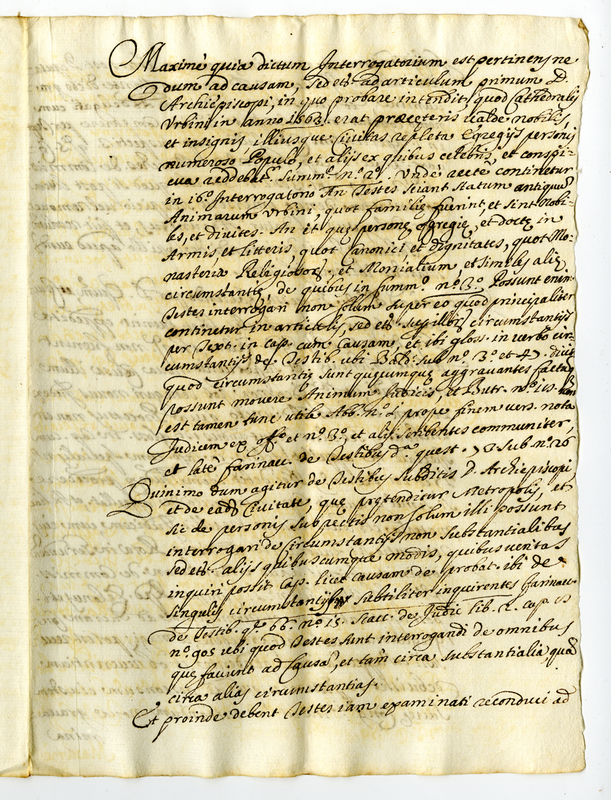 Maximè quia dictum Interrogatorium est pertinens ne
dum ad causam, sed et. ad articulum primum D.
Archiepiscopi, in quo probare intendit, quod Cathedralis
Urbini in anno 1663. erat præ ceteris valde nobilis,
et insignis illiusque Civitas repleta Egregijs personis
numeroso Populo, et alijs ex quibus celebris, et conspi-
cua reddebat. Summ.o n.o 2.o Undè recte continetur
in 16.o Interrogatorio An Testes sciant statum antiquũ
Animarum Urbini, quot familię fuerint, et sint Nobi-
les, et divites. An it que personę egregię, et doctę in
Armis et litteris, quot Canonici et dignitates, quot Mo-
nasteria Religiosor., et Monialium, et similes alię
circumstantię, de quibus in summ.o n.o 3.o Possunt enim
Testes interrogari non solum super eo quod principaliter
continetur in articulis, sed et. sup. illius circumstantijs
per Text. in cap. cum Causam, et ibi glos. in verbo cir-
cumstantijs de Testib. ubi sub n.o 3.o et 4.o dicit
quod circumstantię sunt quęcumque aggravantes factũ
possunt movere Animum Judicis, et Butr. n.o 15. non
est tamen tunc utile Abb. n.o 2. prope finem vers. nota
Judicem ex off.o et n.o 3.o et alij scribentes communiter,
et latè farinac. de Testibus d.a quest. 73 sub n.o 26
Quinimo dum agitur de Testibus subditis D. Archiepiscopi
et de eadẽ Civitate, que prętenditur Metropolis, et
sic de personis suspectis non solum illi possunt
interrogari de circumstantijs non substantialibus
sed et. alijs quibuscumque modis, quibus veritas
inquiri possit Cap. licet causam de probat. ibi de
singulis circumstantijs subtiliter inquirentes farinac.
de Testib. q. 66. n.o 15. Scacc. de Judic. lib. 2. cap. 8
n.o 905 ubi quod Testes sunt interrogandi de omnibus
que faciunt ad Causã, et tam circa substantialia, quã
circa alias circumstantias.
Et proinde debent Testes iam examinati reconduci ad